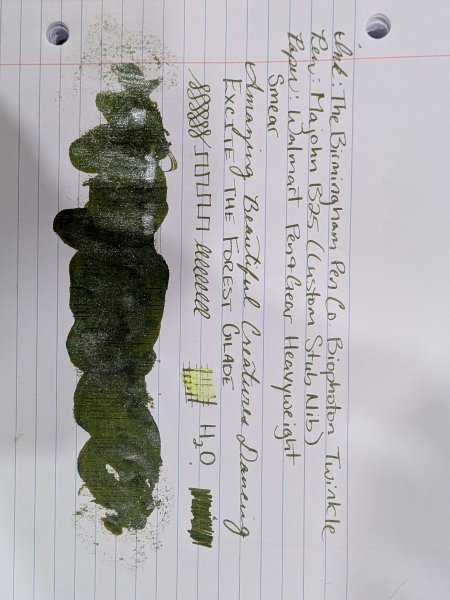 Ink: The Birmingham Pen Co. Biophoton Twinkle
Pen: Majohn B25 (Custom Stub Nib)
Paper: Walmart Pen+Gear Heavyweight
Smear
Amazing Beautiful Creatures Dancing
EXCITE THE FOREST GLADE
H₂O